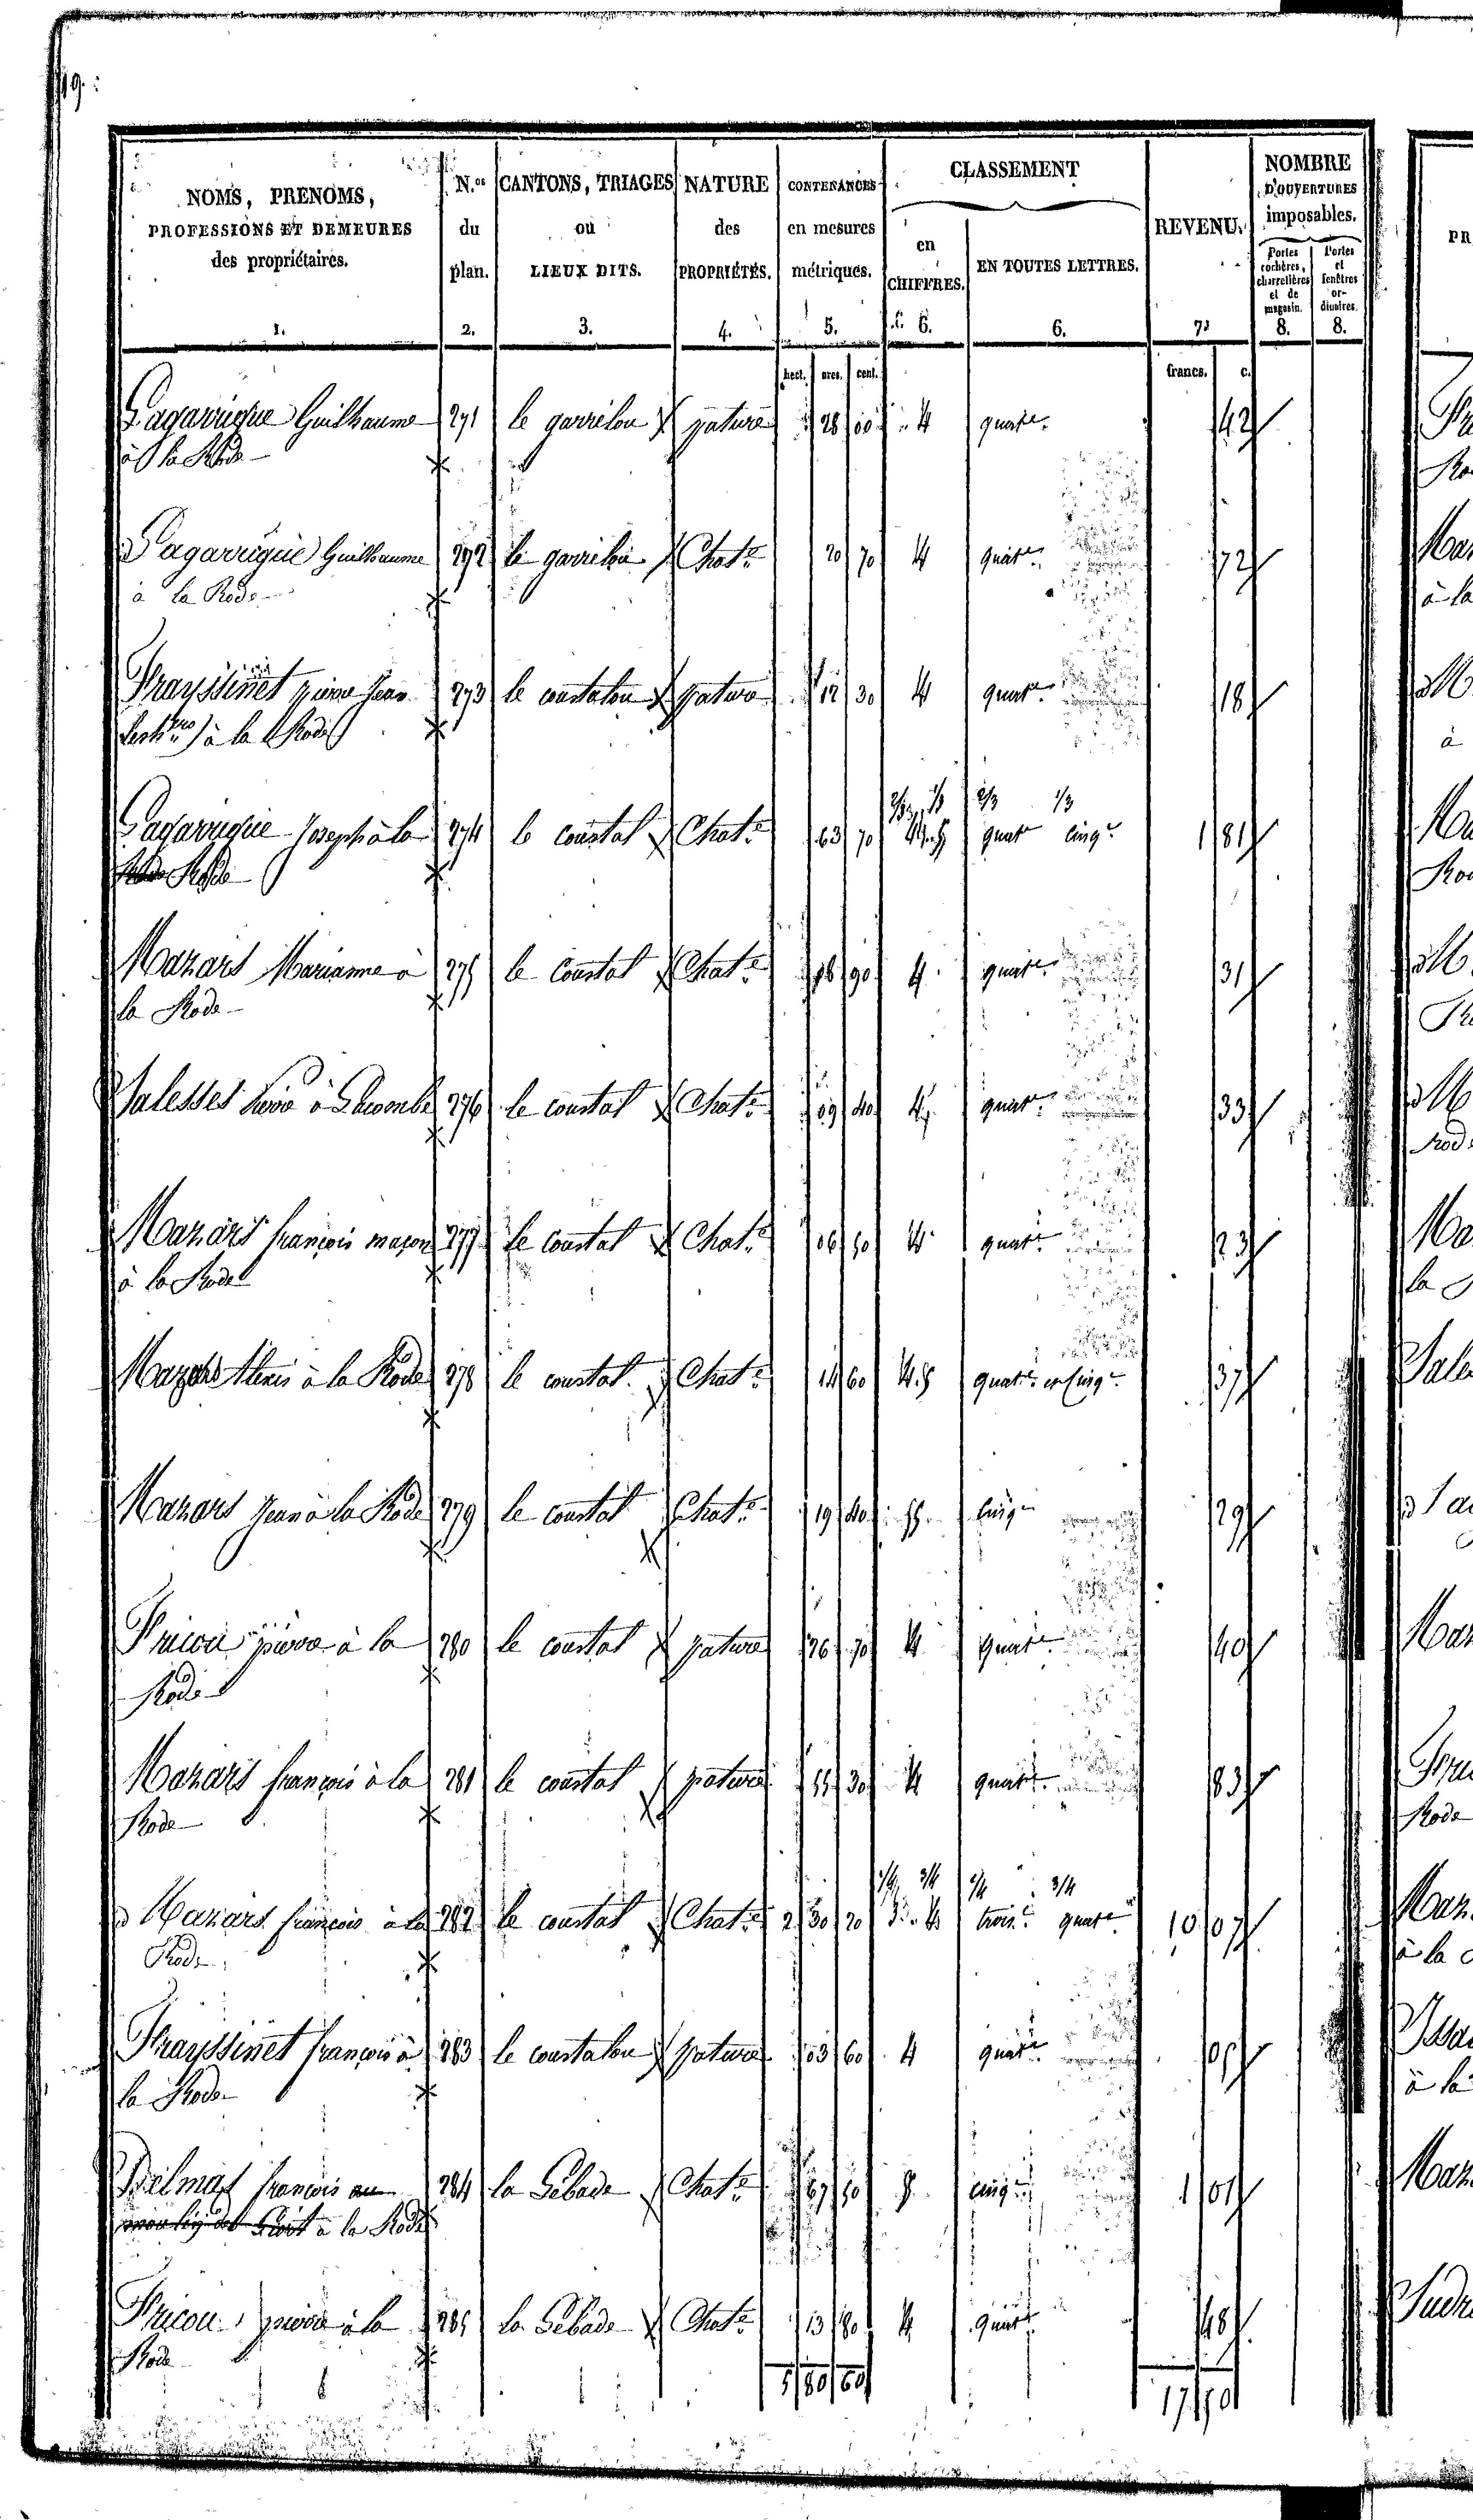 19.
NOMS, PRENOMS, PROFESSIONS ET DEMEURES des propriétaires. 1.
N.os du plan. 2.
CANTONS, TRIAGES ou LIEUX DITS. 3.
NATURE des PROPRIÉTÉS. 4.
CONTENANCES en mesures métriques. 5.
CLASSEMENT
en CHIFFRES. 6.
EN TOUTES LETTRES. 6.
REVENU. 7.
NOMBRE D'OUVERTURES imposables.
Portes cochères, charretières et de magasin. 8.
Portes et fenêtres ordinaires. 8.
hect. ares. cent. francs. c.
Lagarrigue Guilhaume 271 le garrelou pature 28 00 4 quatr. 42
à la Rode
Lagarrigue Guilhaume 272 le Chat.e 20 70 4 quatr. 72
à la Rode
Frayssinet pierre Jean 273 le coustalou pature 12 30 4 quatr. 18
à la Rode
2/3 1/3 2/3 1/3
Lagarrigue Joseph à la 274 le coustal Chat.e 63 70 4. 5 quat cinq.e 1 81
Rode
Mazars Marianne à 275 le Coustal Chat.e 90 4. quatr. 31
la Rode
Salesses 276 le coustal Chat.e 09 40 4 quat. 33
Mazars françois maçon 277 le Coustal Chat.e 06 50 4 quat. 23
à la Rode
Mazars Alexis à la Rode 278 le coustal Chat.e 14 60 4. 5 quat.e et cinq.e 37
Mazars Jean à la Rode 279 le coustal Chat.e 19 40 5. cinq.e 29
Pricou pierre à la 280 le coustal pature 26 70 4 quat.e 40
Rode
Mazars françois à la 281 le coustal pature 55 30 4 quatr. 83
Rode
1/4 3/4 1/4 3/4
Mazars françois à la 282 le coustal Chat.e 2 30 20 3. 4 trois.e quatr. 10 07
Rode
Frayssinet françois à 283 le coustalou pature 03 60 4 quat.e 05
la Rode
Delmas françois 284 la Gebade Chat.e 67 50 5 cinq.e 1 01
à la Rode
Pricou pierre à la 285 la Gebade Chat.e 13 80 4 quatr. 48
Rode
5 80 60 17 50